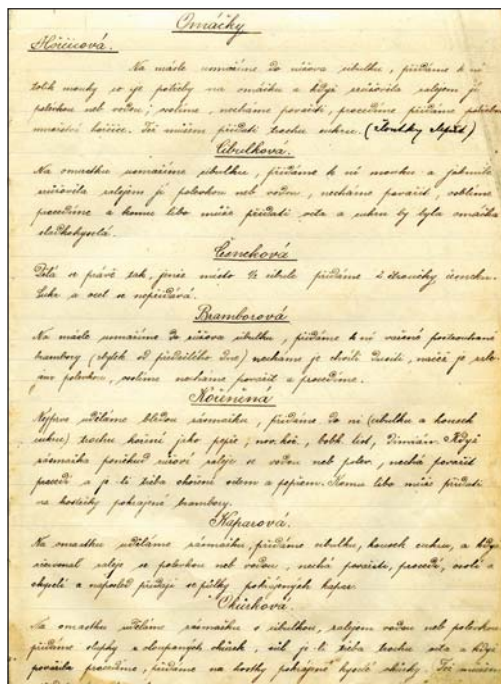 Omáčky
Hořčicová.
Na másle usmažíme do růžova cibulku, přidáme k ní
tolik mouky co je potřeby na omáčku a když zrůžověla zalejem jí
polevkou neb vodou; osolíme, necháme povařiti, procedíme přidáme
hořčice. Též můžem přidati trochu cukru. (Žloutky
Cibulková.
Na omastku usmažíme cibulku, přidáme k ní mouku a jakmile
zrůžověla zalejem jí polevkou neb vodou, necháme povařit, osolíme
procedíme a komu libo může přidati octa a cukru by byla omáčka
sladkokyselá.
Česneková
Dělá se právě tak, jenže místo 1/2 cibule přidáme 2 stroužky česneku.
Cukr a ocet se nepřidává.
Bramborová
Na másle usmažíme do růžova cibulku, přidáme k ní vařené postrouhané
brambory (zbytek od předešlého dne) necháme je chvíli dusiti, načež je zale-
jem polevkou, osolíme necháme povařit a procedíme.
Kořeněná
Nejprve uděláme bledou zásmažku, přidáme do ní (cibulku a kousek
cukru) trochu koření jako pepř, nov. koř., bobk. list, Dimián. Když
zásmažka poněkud růžoví zaleje se vodou neb polev., nechá povařit
procedí a je-li třeba okoření octem a pepřem. Komu libo může přidati
na kostičky pokrájené brambory.
Kaparová.
Na omastku uděláme zásmažku, přidáme cibulku, kousek cukru, a když
zaleje se polevkou neb vodou, nechá povařiti, procedí, osolí a
okyselí a naposled přidají se půlky pokrájených kapar.
Okurková.
Na omastku uděláme zásmažku s cibulkou, zalejem vodou neb polevkou
přidáme slupky z oloupaných okurek, sůl je-li třeba trochu octa a když
povařila procedíme, přidáme na kostky pokrájené kyselé okurky. Též můžem